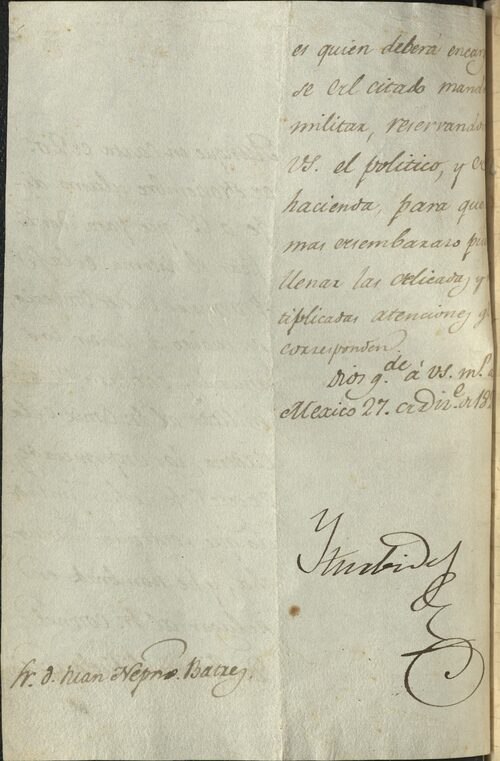 es quien deberá encar
se del citado mand
militar, reservando
VS. el politico, y de
hacienda, para que
mas desembarazo p
llenar las delicadas, y
tiplicadas atenciones q
corresponden.
Dios g.de á VS. m.s a
Mexico 27. de Dic.e de 18
Yturbide
Sr. D. Juan Nepno. Batres.